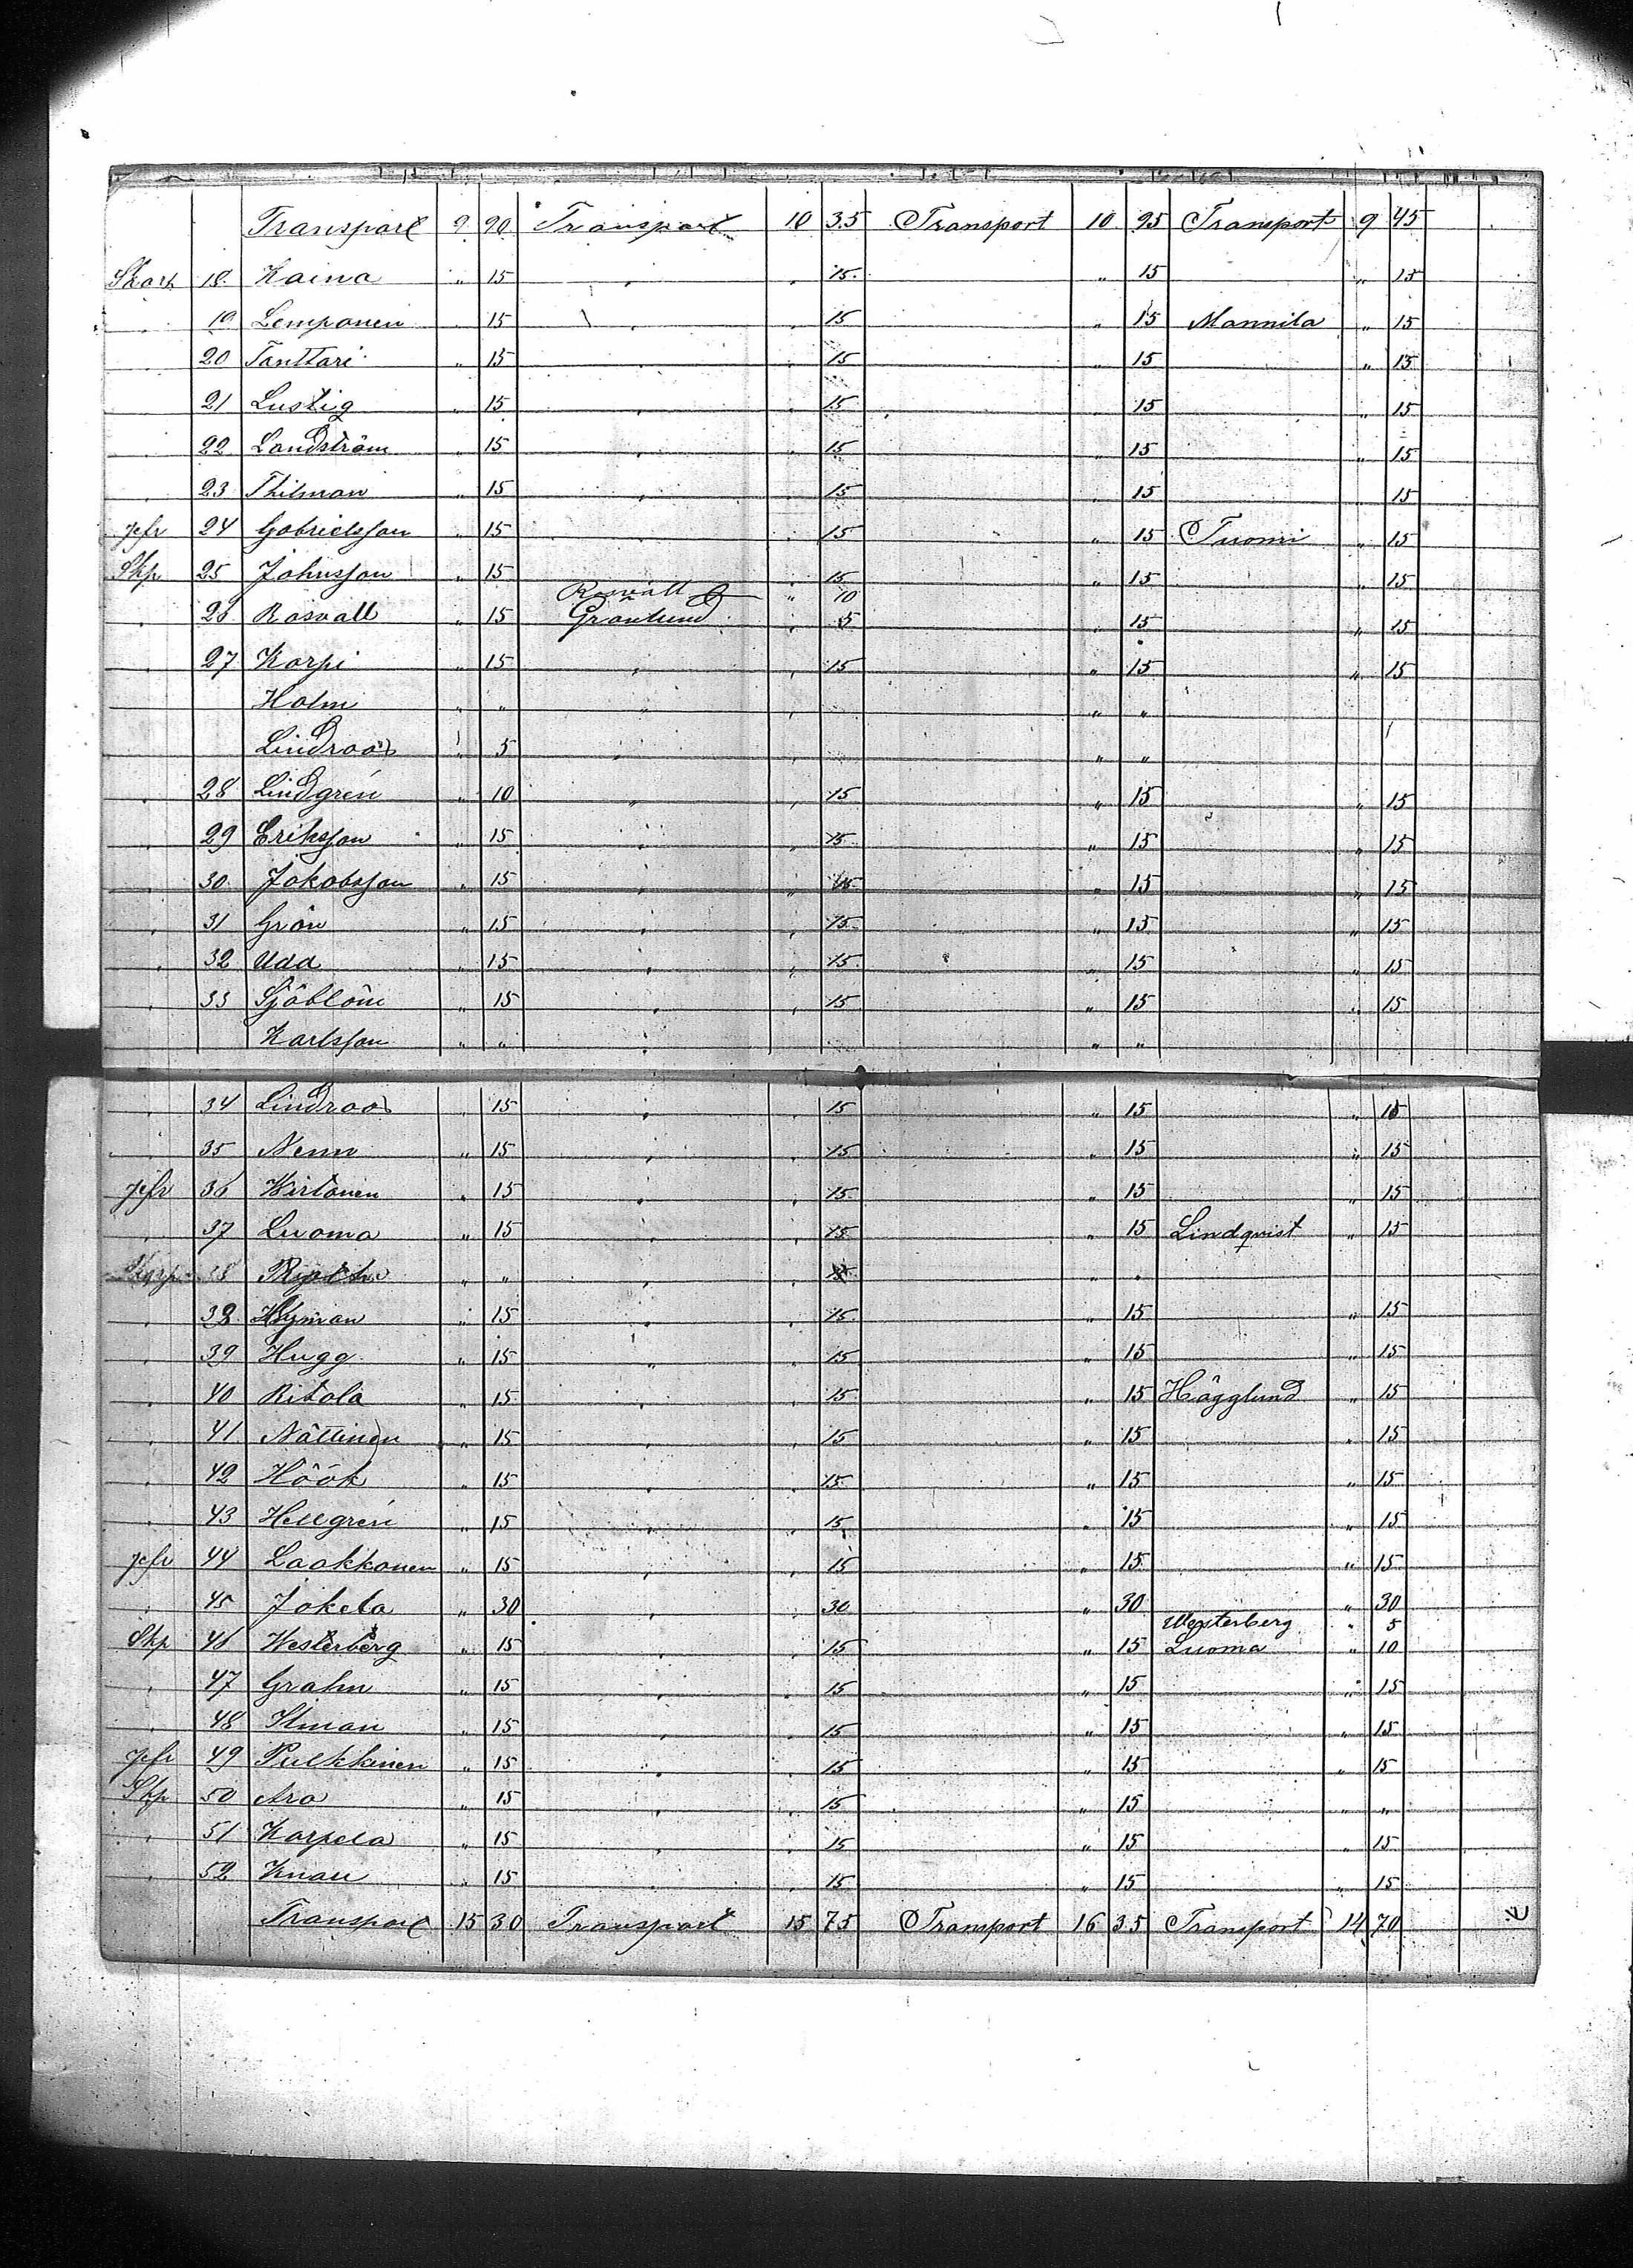 Transport 9 90 Transport 10 35 Transport 10 95 Transport 9 45
Skarp 18 Kaina " 15 " " 15 " 15 " 15
" 19 Lemponen " 15 " " 15 " 15 Mannila " 15
20 Tanttari " 15 " " 15 " 15 " 15
21 Lustig " 15 " " 15 " 15 " 15
" 22 Landström " 15 " " 15 " 15 " 15
" 23 Thilman " 15 " " 15 " 15 15
Jefr 24 Gabrielsson " 15 " 15 " 15 Tuomi " 15
Skp 25 Johnsson " 15 " 15 " 15 " 15
Rosvall " 10
" 26 Rosvall " 15 Granlund " 5 " 15 " 15
" 27 Korpi " 15 " " 15 " 15 " 15
Holm " " " " " "
Lindroos " 5 " " " "
" 28 Lindgrén " 10 " " 15 " 15 " 15
" 29 Eriksson " 15 " " 15 " 15 " 15
" 30 Jakobsson " 15 " " 15 " 15 " 15
" 31 Grön " 15 " " 15 " 15 " 15
" 32 Udd " 15 " " 15 " 15 " 15
" 33 Sjöblom " 15 " " 15 " 15 " 15
Karlsson " " " " "
" 34 Lindroos " 15 " 15 " 15 " 15
" 35 " 15 " " 15 " 15 " 15
Jefr 36 Wirtanen " 15 " " 15 " 15 " 15
" 37 Luoma " 15 " " 15 " 15 Lindqvist " 15
" " " " " "
" 38 Nyman " 15 " " 15 " 15 " 15
" 39 Hugg " 15 " " 15 " 15 " 15
" 40 Ritola " 15 " " 15 " 15 Hägglund " 15
" 41 Nättinen " 15 " " 15 " 15 " 15
" 42 Höök " 15 " " 15 " 15 " 15
" 43 Hellgrén " 15 " " 15 " 15 " 15
Jefr 44 Laakkonen " 15 " " 15 " 15 " 15
" 45 Jokela " 30 " " 30 " 30 " 30
Westerberg " 5
Skp 46 Westerberg " 15 " " 15 " 15 Luoma " 10
" 47 Grahn " 15 " " 15 " 15 " 15
" 48 Ilman " 15 " " 15 " 15 " 15
Jefr 49 Pulkkinen " 15 " " 15 " 15 " 15
Skp 50 Aro " 15 " " 15 " 15 " "
" 51 Karpela " 15 " " 15 " 15 " 15
" 52 " 15 " " 15 " 15 " 15
Transport 15 30 Transport 15 75 Transport 16 35 Transport 14 70